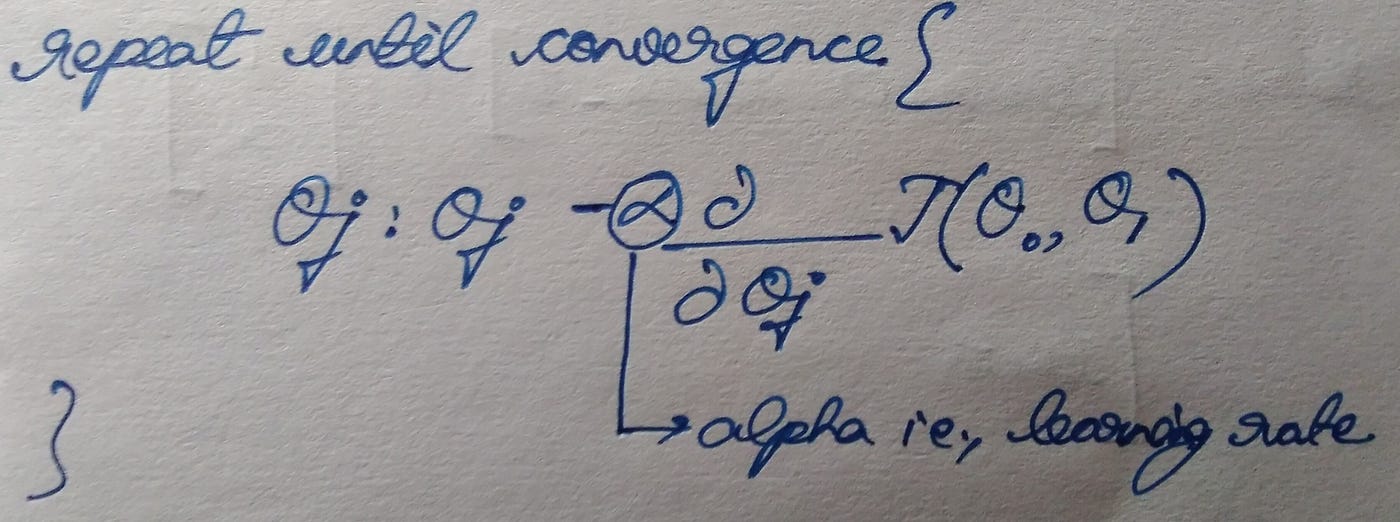 repeat until convergence {
θj : θj - α ∂/∂θj J(θ0, θ1)
alpha ie, learning rate
}